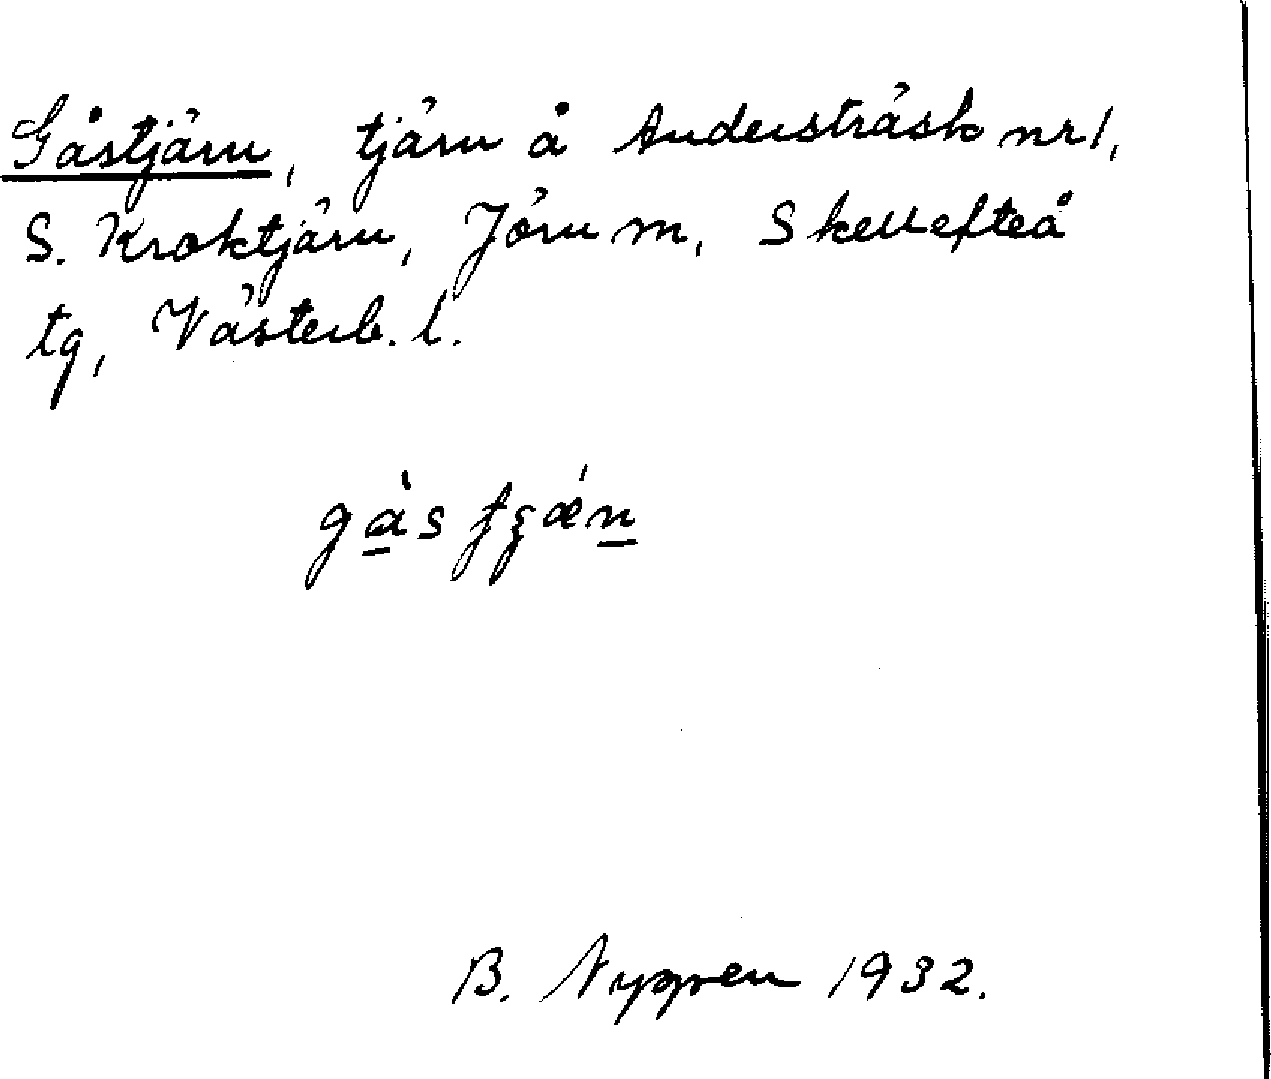 Gåstjärn, tjärn å Andersträsk nr 1,
S. Kroktjärn, Jörn m, Skellefteå
tg, Västerb. l.
B. Nygren 1932.